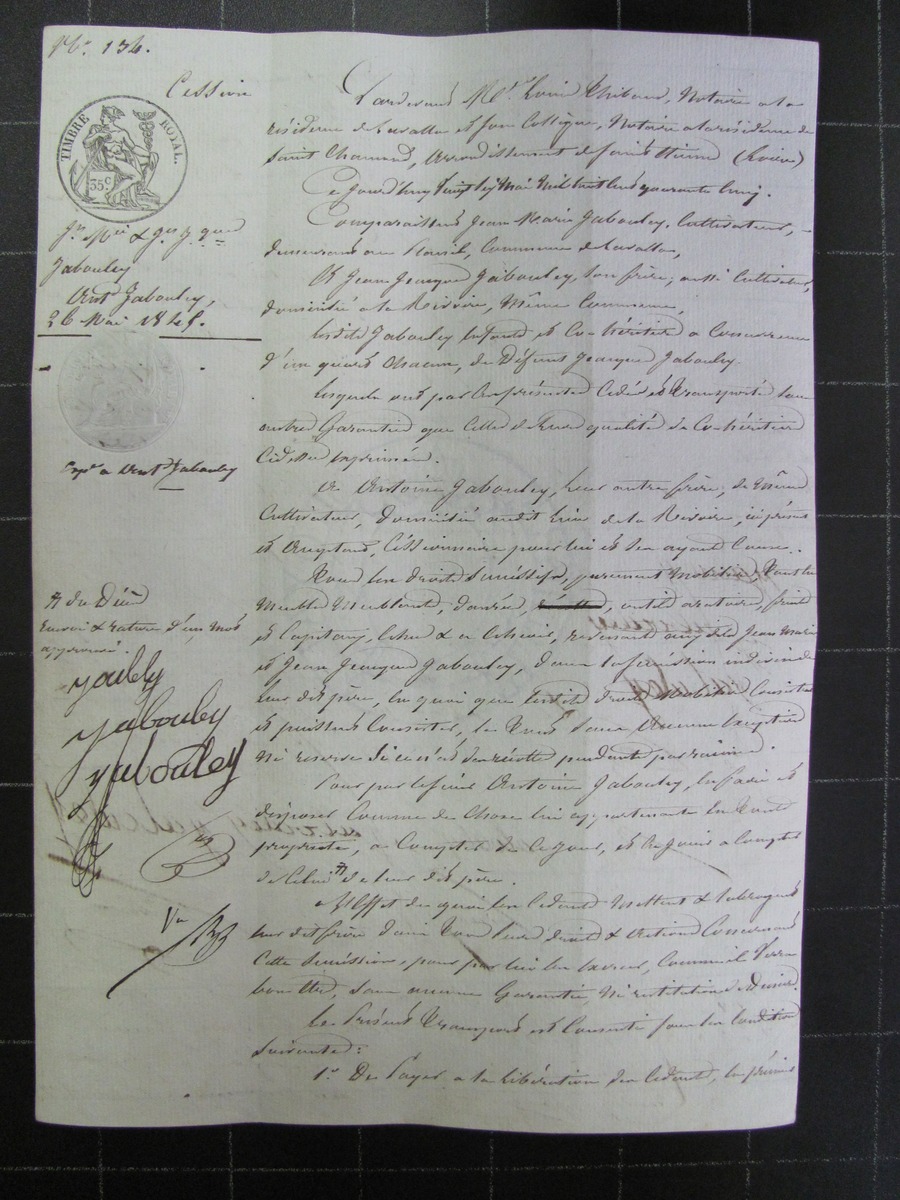 No. 136.
Cession
TIMBRE ROYAL.
35 c
Jn Mie & Jn Jque
Jabouley
Ant Jabouley,
26 Mai 1845.
Expn a Ant Jabouley
# du Décès
Renvoi & rature d'un mot
approuvés.
Jabouley
Jabouley
Vu
Pardevant Me Louis Thibaud, Notaire a la
résidence de Lavalla et son Collègue, Notaire a la résidence de
Saint Chamond, Arrondissement de Saint Etienne (Loire)
Ce Jourd'huy Vingt six Mai Mil huit cent quarante cinq.
Comparaissent Jean Marie Jabouley, Cultivateur,
demeurant au, Commune de Lavalla,
Et Jean Jacques Jabouley, son frère, aussi Cultivateur,
domicilié a la Rivoire, même Commune,
Lesdits Jabouley Enfants et Co-héritiers a Concurrence
d'un quart chacun, de Défunt Jacques Jabouley.
Lesquels ont par les présentes Cédé et transporté sans
autre Garantie que celle de leur qualité de Co-héritiers
Ci dessus exprimée.
A Antoine Jabouley, leur autre frère, de même
Cultivateur, domicilié audit lieu de la Rivoire, ici présent
et Acceptant, Cessionnaire pour lui et ses ayant Cause.
Tous les droits Successifs, purement mobiliers, tant en
Meubles Meublants, denrées, outils aratoires, fruits
et Capitaux, échus & a échoir, revenant auxdits Jean Marie
et Jean Jacques Jabouley, dans la succession indivise de
leur dit père, en quoi que lesdits droits Mobiliers Consistent
et puissent Consister, le tout sans Aucune exception
Ni réserve Si ce n'est des récoltes pendantes par racines.
Pour par le sieur Antoine Jabouley, en faire et
disposer Comme de Chose lui appartenante en toute
propriété, a Compter de Ce jour, et en jouir a Compter
de Celui # de leur dit père.
A l'effet de quoi les Cédants Mettent & subrogent
leur dit frère dans tous leurs droits & actions Concernant
Cette Succession, pour par lui les exercer, Comme il verra
bon être, sans aucune Garantie, Ni restitution de deniers.
Le Présent Transport est Consenti sous les Conditions
suivantes:
1° De Payer a la libération des Cédants, les premiers